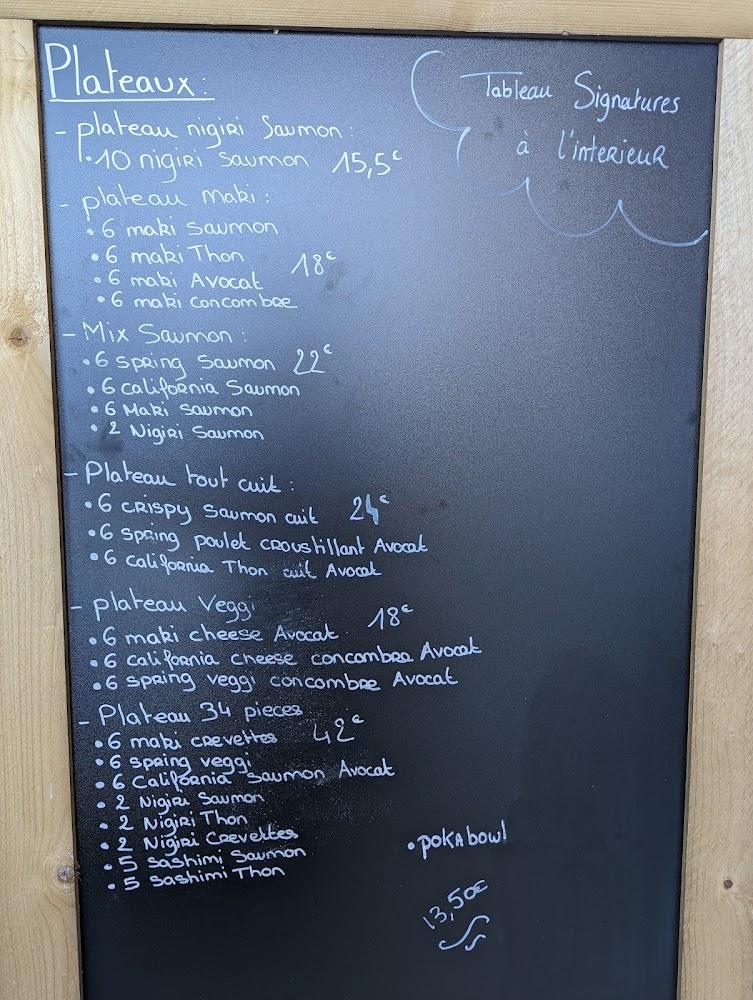 Plateaux :
Tableau Signatures
à l'interieur
- plateau nigiri Saumon :
• 10 nigiri Saumon 15,5€
- plateau maki :
• 6 maki Saumon
• 6 maki Thon 18€
• 6 maki Avocat
• 6 maki concombre
- Mix Saumon :
• 6 spring Saumon 22€
• 6 california Saumon
• 6 Maki Saumon
• 2 Nigiri Saumon
- Plateau tout cuit :
• 6 crispy Saumon cuit 24€
• 6 spring poulet croustillant Avocat
• 6 california Thon cuit Avocat
- plateau Veggi 18€
• 6 maki cheese Avocat
• 6 california cheese concombre Avocat
• 6 spring veggi concombre Avocat
- Plateau 34 pieces
• 6 maki crevettes 42€
• 6 spring veggi
• 6 California Saumon Avocat
• 2 Nigiri Saumon
• 2 Nigiri Thon
• 2 Nigiri Crevettes
• 5 Sashimi Saumon
• 5 Sashimi Thon
• pokAbowl
13,50€